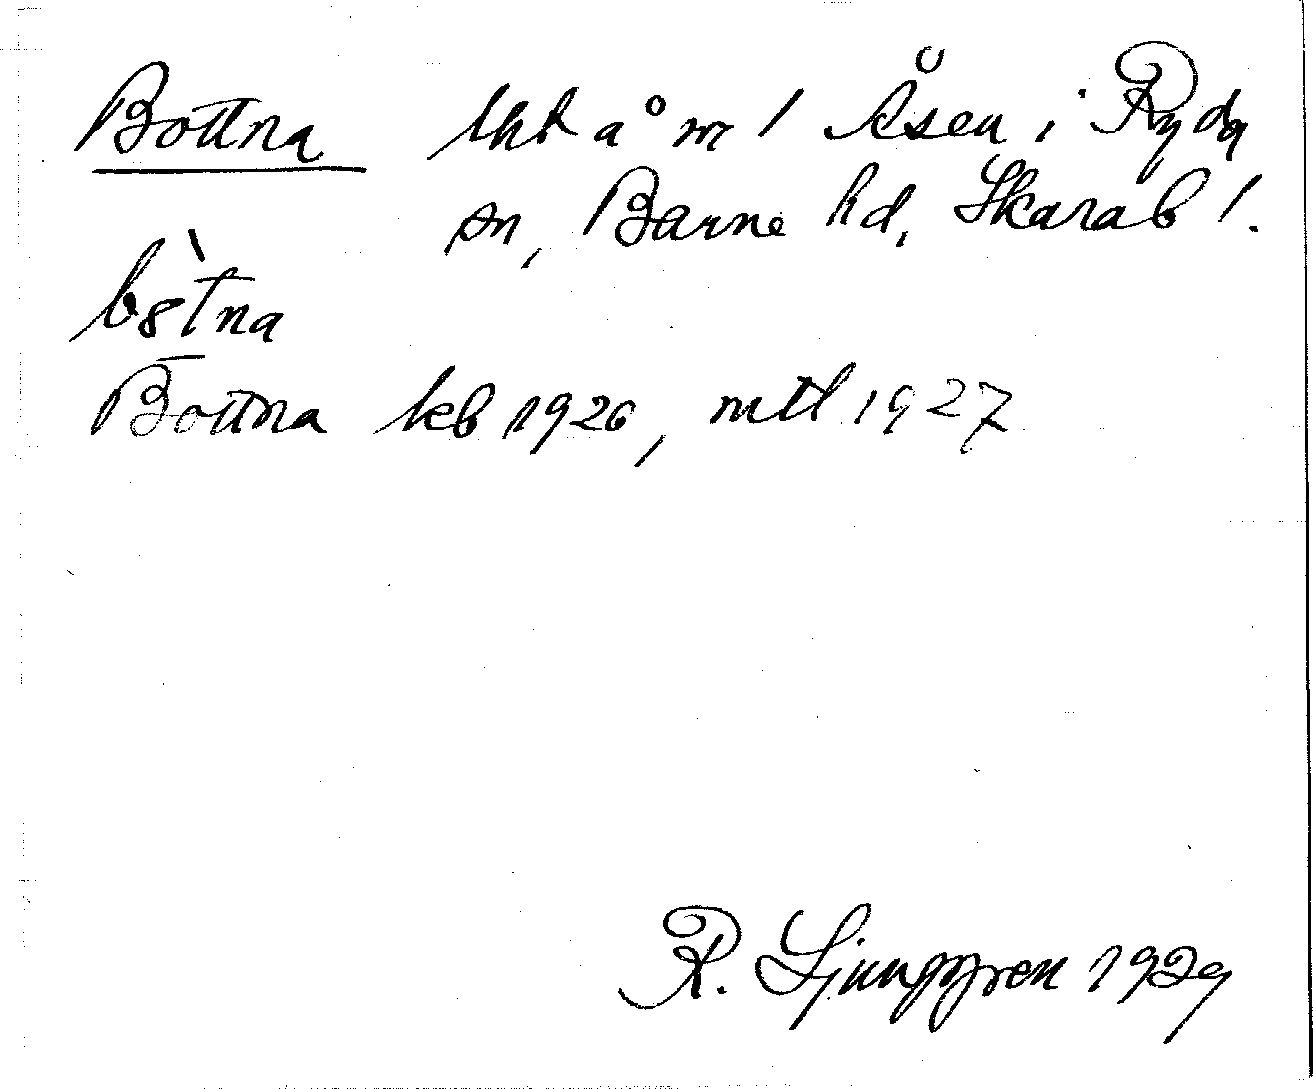 Bottna lht å m 1 Åsen i Ryda
sn, Barne hd, Skarab l.
b8̀tna
Bottna kb 1926, mtl 1927
R. Ljunggren 1929